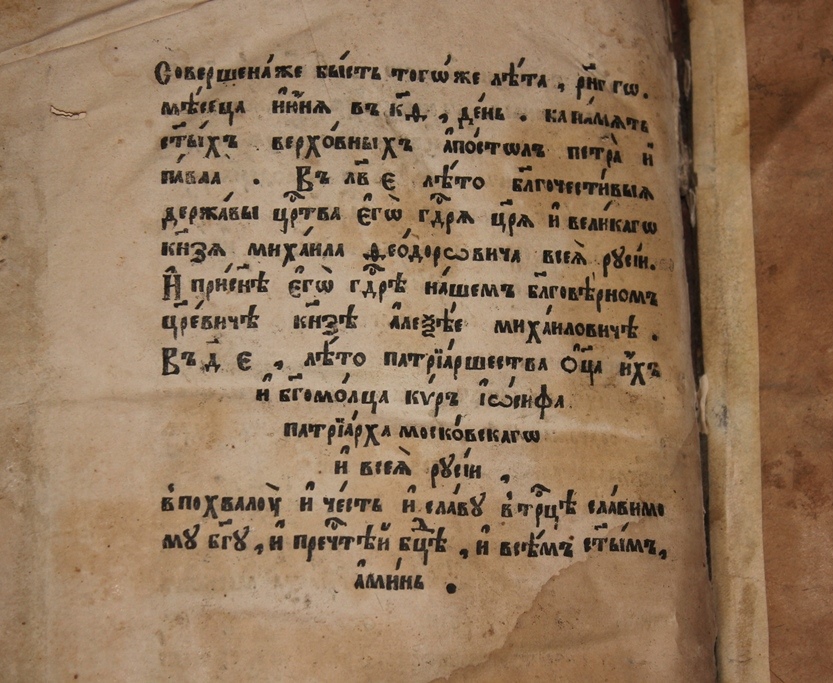 Соверше́на́же бы́сть тогѡ́же лѣ́та , р҃нг гѡ.
мѣ́сѧца і҆ю́нѧ въ к҃ѳ , де́нь . на па́мѧть
ст҃ы́хъ верхо́вныхъ а҆по́столъ петра̀ и҆
па́вла . Въ л҃в є лѣ́то бл҃гочести́выѧ
держа́вы црⷭ҇тва є҆гѡ̀ гдⷭ҇рѧ цр҃ѧ и҆ вели́кагѡ
кн҃зѧ миха́ила ѳео́доровича всеѧ̀ руси́и.
И҆ при сн҃ѣ є҆гѡ̀ гдⷭ҇рѣ на́шемъ бл҃говѣ́рномъ
цр҃е́вичѣ кн҃зѣ а҆леѯѣ́е миха́иловичѣ .
Въ д҃ є , лѣ́то патрїа́ршества ѻ҆ц҃а и҆́хъ
и҆ бг҃омо́лца кѵ́ръ і҆ѡ́сифа
патрїа́рха моско́вскагѡ
и҆ всеѧ̀ руси́и ,
в похвалоу̀ и҆ че́сть и҆ сла́ву в трⷪ҇цѣ сла́вимо
му бг҃у , и҆ пречⷭ҇тѣ́й бцⷣѣ , и҆ всѣ́мъ ст҃ы́мъ,
а҆ми́нь .